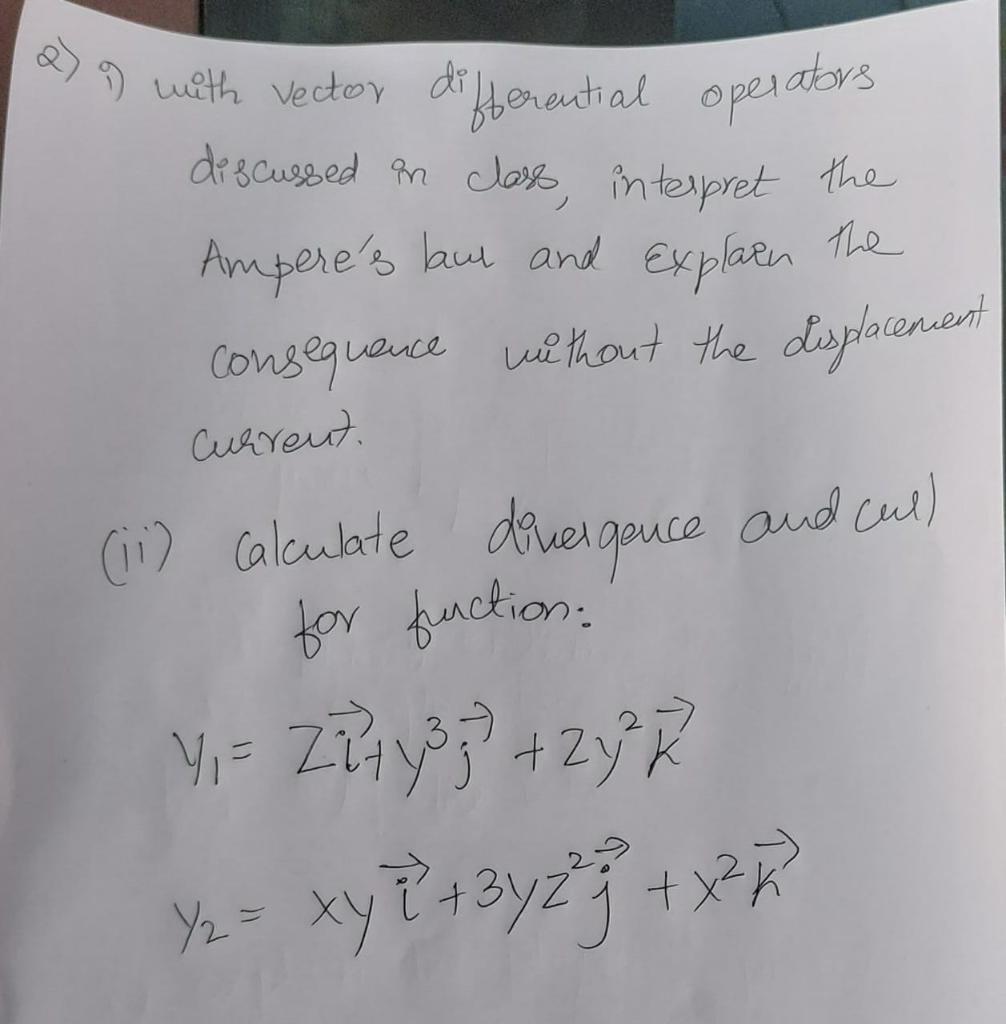 2) i) with vector differential operators
discussed in class, interpret the
Ampere's law and explain the
consequence without the displacement
current.
(ii) Calculate divergence and curl
for fuction:
y₁ = z i⃗ + y³ j⃗ + 2y² k⃗
y₂ = xy i⃗ + 3yz² j⃗ + x² k⃗